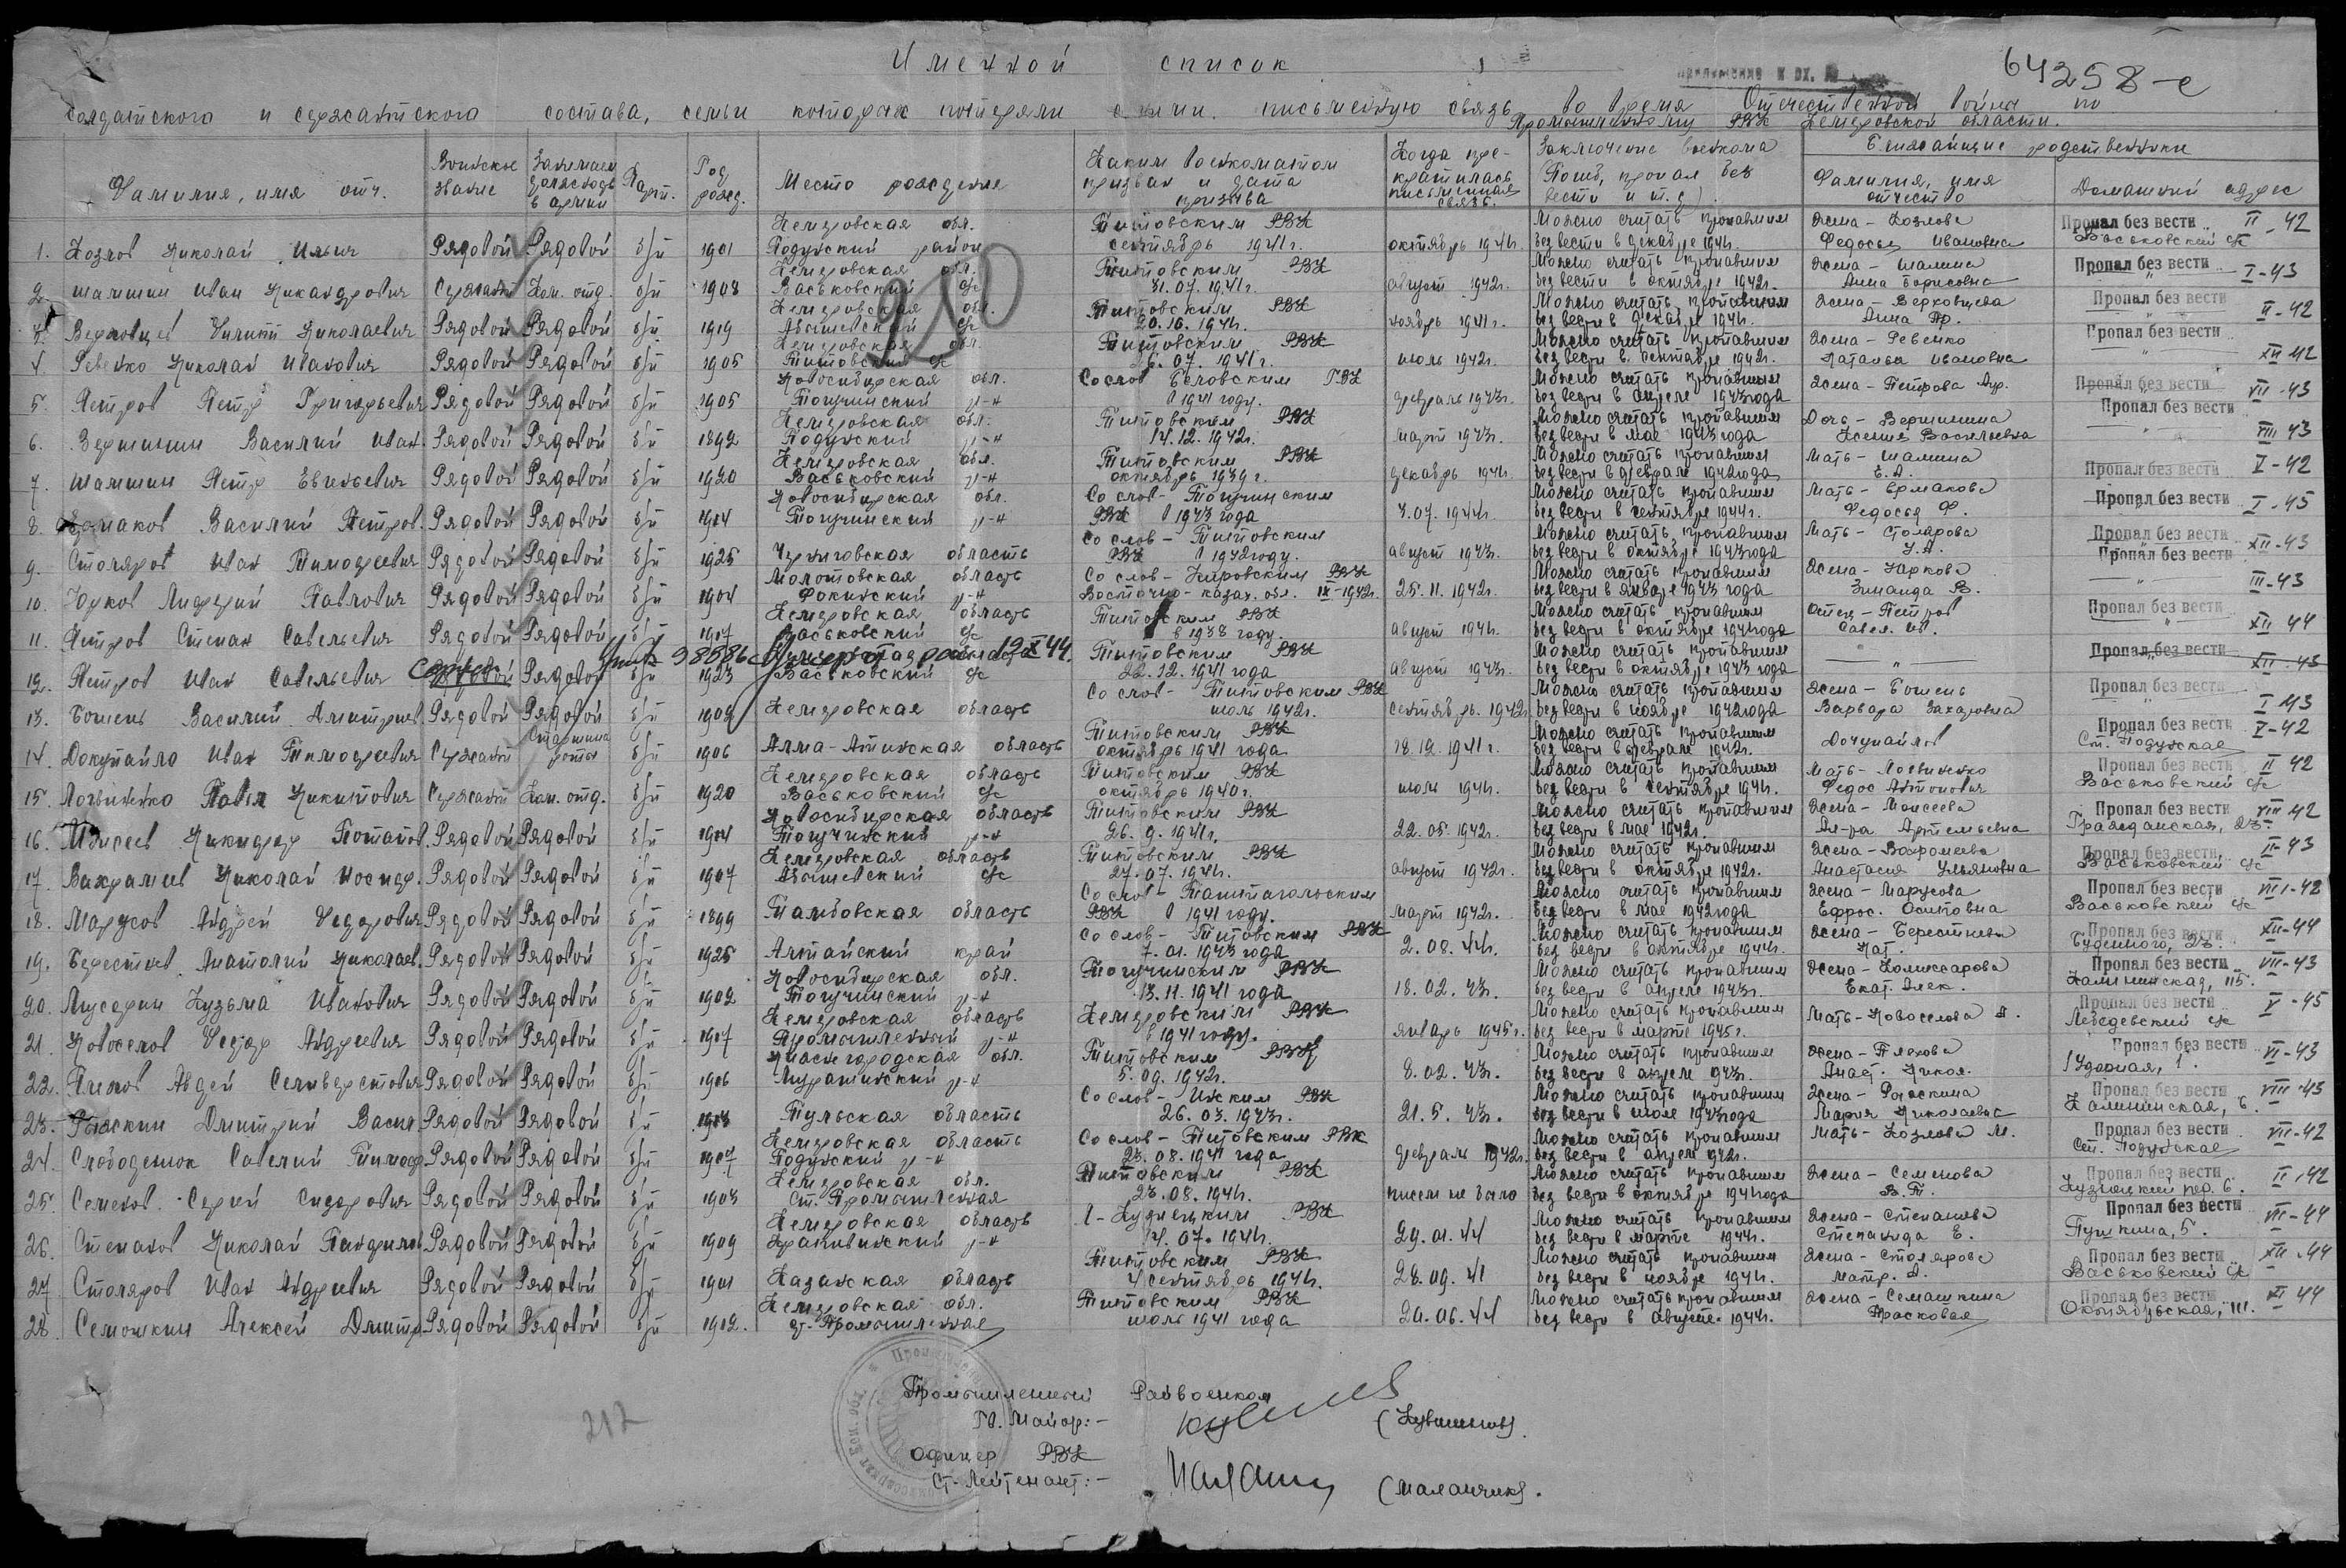 Именной список
64258-с
солдатского и сержантского состава, семьи которых потеряли с ними письменную связь во время Отечественной войны по
Промышленному РВК Кемеровской области.
Фамилия, имя отч. Воинское звание Занимаем должность в армии Парт. Год рожд. Место рождения Каким военкоматом призван и дата призыва Когда прекратилась письменная связь. Заключение военкома (Погиб, пропал без вести и т.д.) Ближайшие родственники Фамилия, имя отчество Домашний адрес
1. Козлов Николай Ильич Рядовой Рядовой б/п 1901 Кемеровская обл. Титовским РВК сентябрь 1941г. октябрь 1941г. Можно считать пропавшим без вести в декабре 1941г. Жена - Козлова Федосья Ивановна Пропал без вести II-42 Васьковский с/с
2. Шамшин Иван Никандрович Сержант Ком. отд. б/п 1908 Кемеровская обл. Васьковский с/с Титовским РВК 31.07.1941г. август 1942г. Можно считать пропавшим без вести в октябре 1942г. Жена - Шамина Анна Борисовна Пропал без вести I-43
3. Верховцев Филипп Николаевич Рядовой Рядовой б/п 1919 Кемеровская обл. Абышевский с/с Титовским РВК 20.10.1941г. ноябрь 1941г. Можно считать пропавшим без вести в декабре 1941г. Жена - Верховцева Анна Пропал без вести II-42
4. Ревенко Николай Иванович Рядовой Рядовой б/п 1905 Кемеровская обл. Титовский с/с Титовским РВК 26.07.1941г. июль 1942г. Можно считать пропавшим без вести в сентябре 1942г. Жена - Ревенко Наталья Ивановна Пропал без вести XII 42
5. Петров Петр Григорьевич Рядовой Рядовой б/п 1905 Новосибирская обл. Тогучинский р-н Со слов Беловским ГВК в 1941 году. февраль 1943г. Можно считать пропавшим без вести в апреле 1943 года Жена - Петрова Пропал без вести VII-43
6. Вершинин Василий Иван. Рядовой Рядовой б/п 1892 Кемеровская обл. р-н Титовским РВК 14.12.1942г. март 1943г. Можно считать пропавшим без вести в мае 1943 года Дочь - Вершинина Ксения Васильевна Пропал без вести VIII 43
7. Шамшин Петр Евгеньевич Рядовой Рядовой б/п 1920 Кемеровская обл. Васьковский р-н Титовским РВК октябрь 1939г. декабрь 1941г. Можно считать пропавшим без вести в феврале 1942 года Мать - Шамина Е.А. Пропал без вести V-42
8. Ермаков Василий Петров. Рядовой Рядовой б/п 1914 Новосибирская обл. Тогучинский р-н Со слов - Тогучинским РВК в 1943 года 7.07.1944г. Можно считать пропавшим без вести в сентябре 1944г. Мать - Ермакова Федосья Ф. Пропал без вести I-45
9. Столяров Иван Тимофеевич Рядовой Рядовой б/п 1925 Черниговская область Со слов - Титовским РВК в 1942 году. август 1943г. Можно считать пропавшим без вести в октябре 1943 года Мать - Столярова У.А. Пропал без вести XII-43
10. Юрков Рядовой Рядовой б/п 1904 Молотовская область Фокинский р-н Со слов - Кировским РВК Восточно-казах. обл. IX-1942г. 25.11.1942г. Можно считать пропавшим без вести в январе 1943 года Жена - Юркова Зинаида В. Пропал без вести III-43
11. Петров Степан Савельевич Рядовой Рядовой б/п 1917 Кемеровская область Васьковский с/с Титовским РВК в 1938 году. август 1941г. Можно считать пропавшим без вести в октябре 1941 года Отец - Петров Савел. Ив. Пропал без вести XII 44
12. Петров Иван Савельевич Рядовой б/п 1923 Васьковский с/с Титовским РВК 22.12.1941 года август 1943г. Можно считать пропавшим без вести в октябре 1943 года — " — Пропал без вести XII-43
умер от ран 12 X 44.
13. Василий Дмитриев. Рядовой Рядовой б/п 1902 Кемеровская область Со слов - Титовским РВК июль 1942г. сентябрь. 1942г. Можно считать пропавшим без вести в ноябре 1942 года Жена - Варвара Захаровна Пропал без вести I-43
14. Докупайло Иван Тимофеевич Сержант Старшина роты б/п 1906 Алма-Атинская область Титовским РВК октябрь 1941 года 18.12.1941г. Можно считать пропавшим без вести в феврале 1942г. Пропал без вести V-42 Ст.
15. Логвиненко Павел Никитович Сержант Ком. отд. б/п 1920 Кемеровская область Васьковский с/с Титовским РВК октябрь 1940г. июль 1941г. Можно считать пропавшим без вести в сентябре 1941г. Мать - Логвиненко Пропал без вести II 42 Васьковский с/с
16. Моисеев Никифор Потапов. Рядовой Рядовой б/п 1904 Новосибирская область Тогучинский р-н Титовским РВК 26.9.1941г. 22.05.1942г. Можно считать пропавшим без вести в мае 1942г. Жена - Моисеева Ал-ра Артемьевна Пропал без вести VIII 42 Гражданская, 23.
17. Вахрамеев Николай Иосиф. Рядовой Рядовой б/п 1907 Кемеровская область Абышевский с/с Титовским РВК 27.07.1941г. август 1942г. Можно считать пропавшим без вести в октябре 1942г. Жена - Вахромеева Анастасия Ульяновна Пропал без вести II-43 Васьковский с/с
18. Марусов Андрей Федорович Рядовой Рядовой б/п 1899 Тамбовская область Со слов - Таштагольским РВК в 1941 году. март 1942г. Можно считать пропавшим без вести в мае 1942 года Жена - Марусова Ефрос. Осиповна Пропал без вести VIII-42 Васьковский с/с
19. Берестнев Анатолий Николаев. Рядовой Рядовой б/п 1925 Алтайский край Со слов - Титовским РВК 7.01.1943 года 2.08.44г. Можно считать пропавшим без вести в октябре 1944г. Жена - Берестнева Нат. Пропал без вести XII-44 Буденного, 23.
20. Кузьма Иванович Рядовой Рядовой б/п 1902 Новосибирская обл. Тогучинский р-н Тогучинским РВК 13.11.1941 года 18.02.43г. Можно считать пропавшим без вести в апреле 1943г. Жена - Комиссарова Екат. Алек. Пропал без вести VII-43 Калининская, 115.
21. Новоселов Федор Андреевич Рядовой Рядовой б/п 1907 Кемеровская область Промышленный р-н Кемеровским РВК в 1941 году. январь 1945г. Можно считать пропавшим без вести в марте 1945г. Мать - Новоселова А. Пропал без вести V-45 Лебедевский с/с
22. Авдей Селиверстович Рядовой Рядовой б/п 1906 обл. р-н Титовским РВК 5.09.1942г. 8.02.43г. Можно считать пропавшим без вести в апреле 1943г. Жена - Анаст. Никол. Пропал без вести VI-43 Ударная, 1.
23. Дмитрий Васил Рядовой Рядовой б/п Тульская область Со слов - РВК 26.03.1943г. 21.5.43г. Можно считать пропавшим без вести в июле 1943 года Жена - Мария Николаевна Пропал без вести VIII-43 Калининская, 6.
24. Слободенюк Савелий Тимоф Рядовой Рядовой б/п 1907 Кемеровская область р-н Со слов - Титовским РВК 23.08.1941 года февраль 1942г. Можно считать пропавшим без вести в апреле 1942г. Мать - Козлова М. Пропал без вести VII-42 Ст.
25. Семенов Сергей Сидорович Рядовой Рядовой б/п 1903 Кемеровская обл. ст. Промышленная Титовским РВК 23.08.1941г. писем не было Можно считать пропавшим без вести в октябре 1941 года Жена - Семенова В.Т. Пропал без вести II-42 Кузнецкий пер. 6.
26. Степанов Николай Панфилов Рядовой Рядовой б/п 1909 Кемеровская область Крапивинский р-н Л-Кузнецким РВК 14.07.1941г. 29.01.44 Можно считать пропавшим без вести в марте 1944г. Жена - Степанова Степанида Е. Пропал без вести VII-44 Пушкина, 5.
27. Столяров Иван Андреевич Рядовой Рядовой б/п 1901 Казанская область Титовским РВК 4 сентябрь 1941г. 28.09.41 Можно считать пропавшим без вести в ноябре 1941г. Жена - Столярова Матр. А. Пропал без вести XII-44 Васьковский с/с
28. Семошкин Алексей Дмитр. Рядовой Рядовой б/п 1912. Кемеровская обл. ст. Промышленная Титовским РВК июль 1941 года 20.06.44 Можно считать пропавшим без вести в августе 1944г. Жена - Семашкина Прасковья Пропал без вести XI 44 Октябрьская, 111.
Промышленный Райвоенком
Гв. Майор:-
(Кувшинов).
Офицер РВК
Ст. Лейтенант:-
(Маланчик).
212